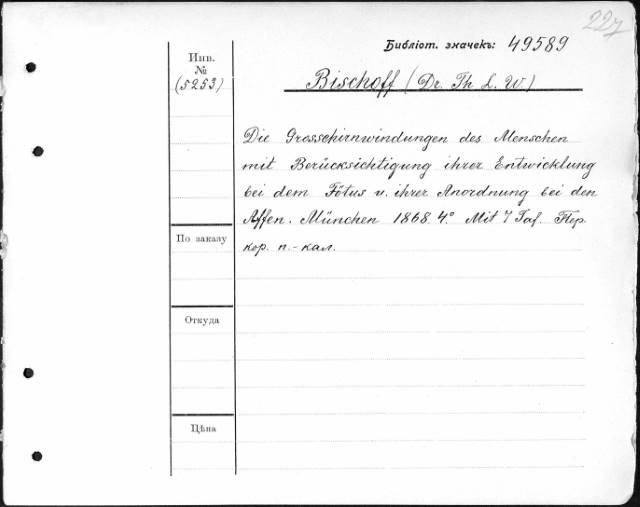 227
Библіот. значекъ: 49589
Инв.
№
(5253)
Bischoff (Dr. Th. L. W.)
Die Grosshirnwindungen des Menschen
mit Berücksichtigung ihrer Entwicklung
bei dem Fötus u. ihrer Anordnung bei den
Affen. München 1868. 4° Mit 7 Taf. Пер.
кор. п.-кал.
По заказу
Откуда
Цѣна